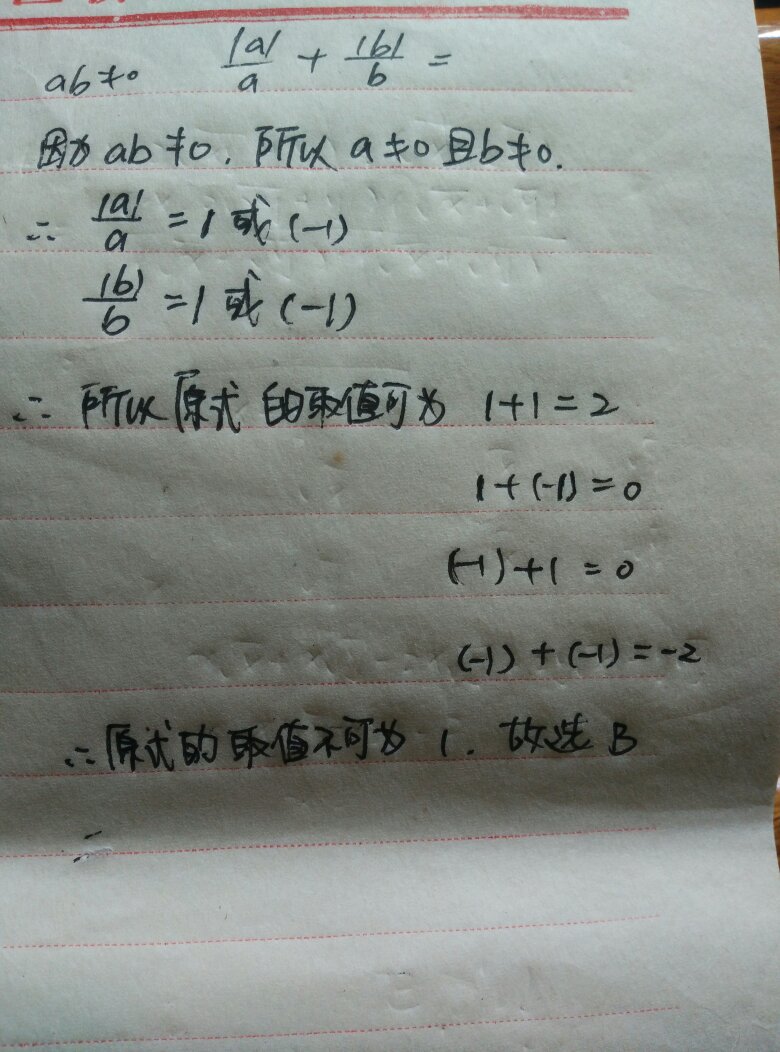 ab≠0 |a|/a + |b|/b =
因为ab≠0,所以a≠0且b≠0.
∴ |a|/a =1或(-1)
|b|/b =1或(-1)
∴ 所以原式的取值可为 1+1=2
1+(-1)=0
(-1)+1=0
(-1)+(-1)=-2
∴原式的取值不可为 1. 故选B